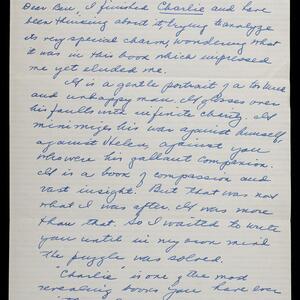 Dear Ben, I finished Charlie and have
been thinking about it, trying to analyze
its very special charm, wondering what
it was in this book which impressed
me yet eluded me.
It is a gentle portrait of a tortured
and unhappy man. It glosses over
his faults with infinite charity. It
minimizes his war against himself,
against Helen, against you
who were his gallant companion.
It is a book of compassion and
vast insight. But that was not
what I was after. It was more
than that. So I waited to write
you until in my own mind
the puzzle was solved.
"Charlie" is one of the most
revealing books you have ever